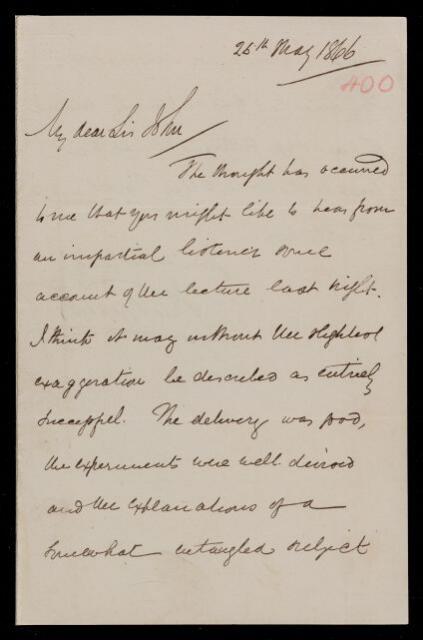 26th May 1866
400
My dear Sir John
The thought has occurred
to me that you might like to hear from
an impartial listener some
account of the lecture last night.
I think it may without the slightest
exaggeration be described as entirely
successful. The delivery was good,
the experiments were well devised
and the explanations of a
somewhat entangled subject